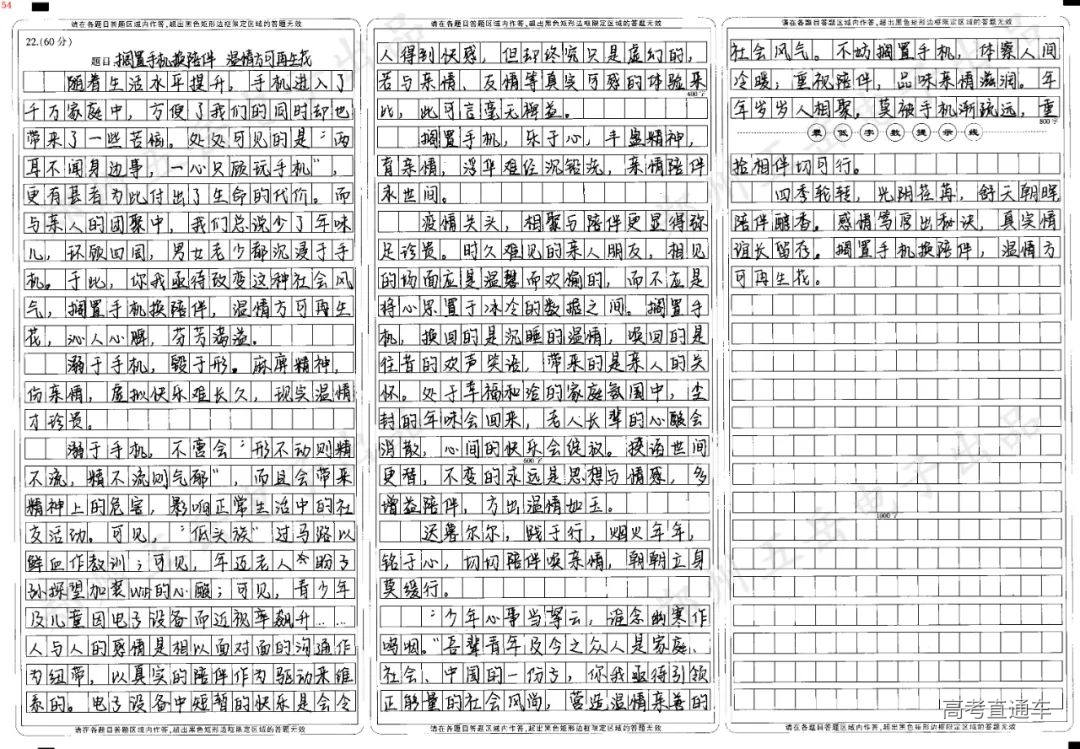 54
请在各题目答题区域内作答,超出黑色矩形边框限定区域的答题无效
22.(60分)
题目:搁置手机换陪伴 温情方可再生花
随着生活水平提升,手机进入了
千万家庭中,方便了我们的同时却也
带来了一些苦恼。处处可见的是“两
耳不闻身边事,一心只顾玩手机”,
更有甚者为此付出了生命的代价。而
与亲人的团聚中,我们总说少了年味
儿,环顾四周,男女老少都沉浸于手
机。于此,你我亟待改变这种社会风
气,搁置手机换陪伴,温情方可再生
花,沁人心脾,芬芳满溢。
溺于手机,毁于形。麻痹精神,
伤亲情,虚拟快乐难长久,现实温情
才珍贵。
溺于手机,不啻会“形不动则精
不流,精不流则气郁”,而且会带来
精神上的危害,影响正常生活中的社
交活动。可见,“低头族”过马路以
鲜血作教训;可见,年迈老人盼子
孙探望加装wifi的心酸;可见,青少年
及儿童因电子设备而近视率飙升……
人与人的感情是相以面对面的沟通作
为纽带,以真实的陪伴作为驱动来维
系的。电子设备中短暂的快乐是会令
请在各题目答题区域内作答,超出黑色矩形边框限定区域的答题无效
请在各题目答题区域内作答,超出黑色矩形边框限定区域的答题无效
人得到快感,但却终究只是虚幻的,
若与亲情、友情等真实可感的体验来
400字
比,此可言毫无裨益。
搁置手机,乐于心,丰盈精神,
育亲情,浮华难经沉铅洗,亲情陪伴
永世间。
疫情关头,相聚与陪伴更显得弥
足珍贵。时久难见的亲人朋友,相见
的场面应是温馨而欢愉的,而不应是
将心思置于冰冷的数据之间。搁置手
机,换回的是沉睡的温情,唤回的是
往昔的欢声笑语,带来的是亲人的关
怀。处于幸福和洽的家庭氛围中,尘
封的年味会回来,老人长辈的心酸会
消散,心间的快乐会绽放。换语世间
600字
更替,不变的永远是思想与情感,多
增益陪伴,方出温情如玉。
送暮尔尔,践于行,烟火年年,
铭于心,切切陪伴唤亲情,朝朝立身
莫缓行。
“少年心事当拏云,谁念幽寒作
呜咽。”吾辈青年及今之众人是家庭、
社会、中国的一份子,你我亟待引领
正能量的社会风尚,营造温情亲善的
请在各题目答题区域内作答,超出黑色矩形边框限定区域的答题无效
请在各题目答题区域内作答,超出黑色矩形边框限定区域的答题无效
社会风气。不妨搁置手机,体察人间
冷暖;重视陪伴,品味亲情滋润。年
年岁岁人相聚,莫被手机渐疏远,重
800字
最低字数提示线
拾相伴切可行。
四季轮转,光阴荏苒,舒天朝晖
陪伴醇香。感情笃厚出秘诀,真实情
谊长留存。搁置手机换陪伴,温情方
可再生花。
1000字
请在各题目答题区域内作答,超出黑色矩形边框限定区域的答题无效
高考直通车